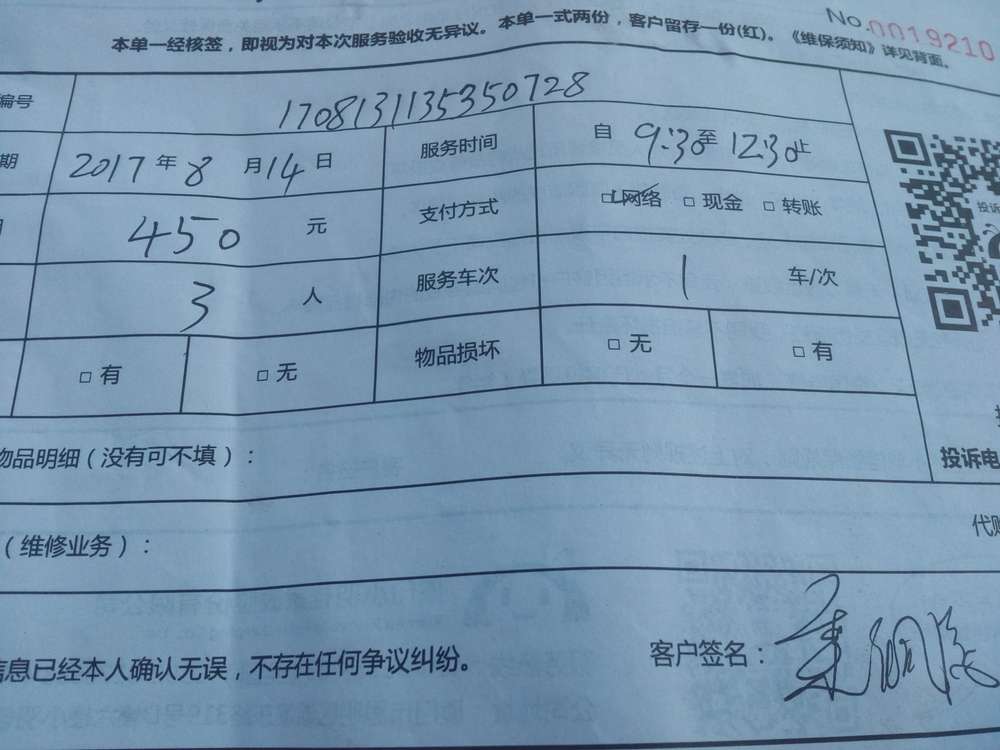 No.0019210
本单一经核签，即视为对本次服务验收无异议。本单一式两份，客户留存一份(红)。《维保须知》详见背面。
编号 1708131135350728
期 2017年8月14日 服务时间 自9:30至12:30止
450元 支付方式 □网络 □现金 □转账
3人 服务车次 1车/次
□有 □无 物品损坏 □无 □有
物品明细（没有可不填）：
投诉电
代购
（维修业务）：
信息已经本人确认无误，不存在任何争议纠纷。
客户签名：